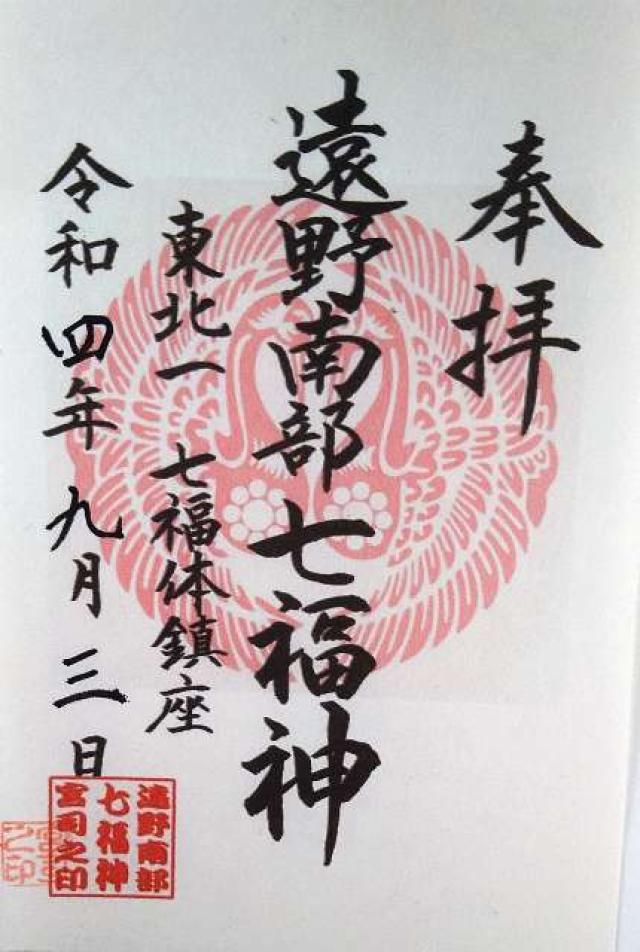 奉拝
遠野南部七福神
東北一 七福体鎮座
令和四年九月三日
遠野南部
七福神
宮司之印